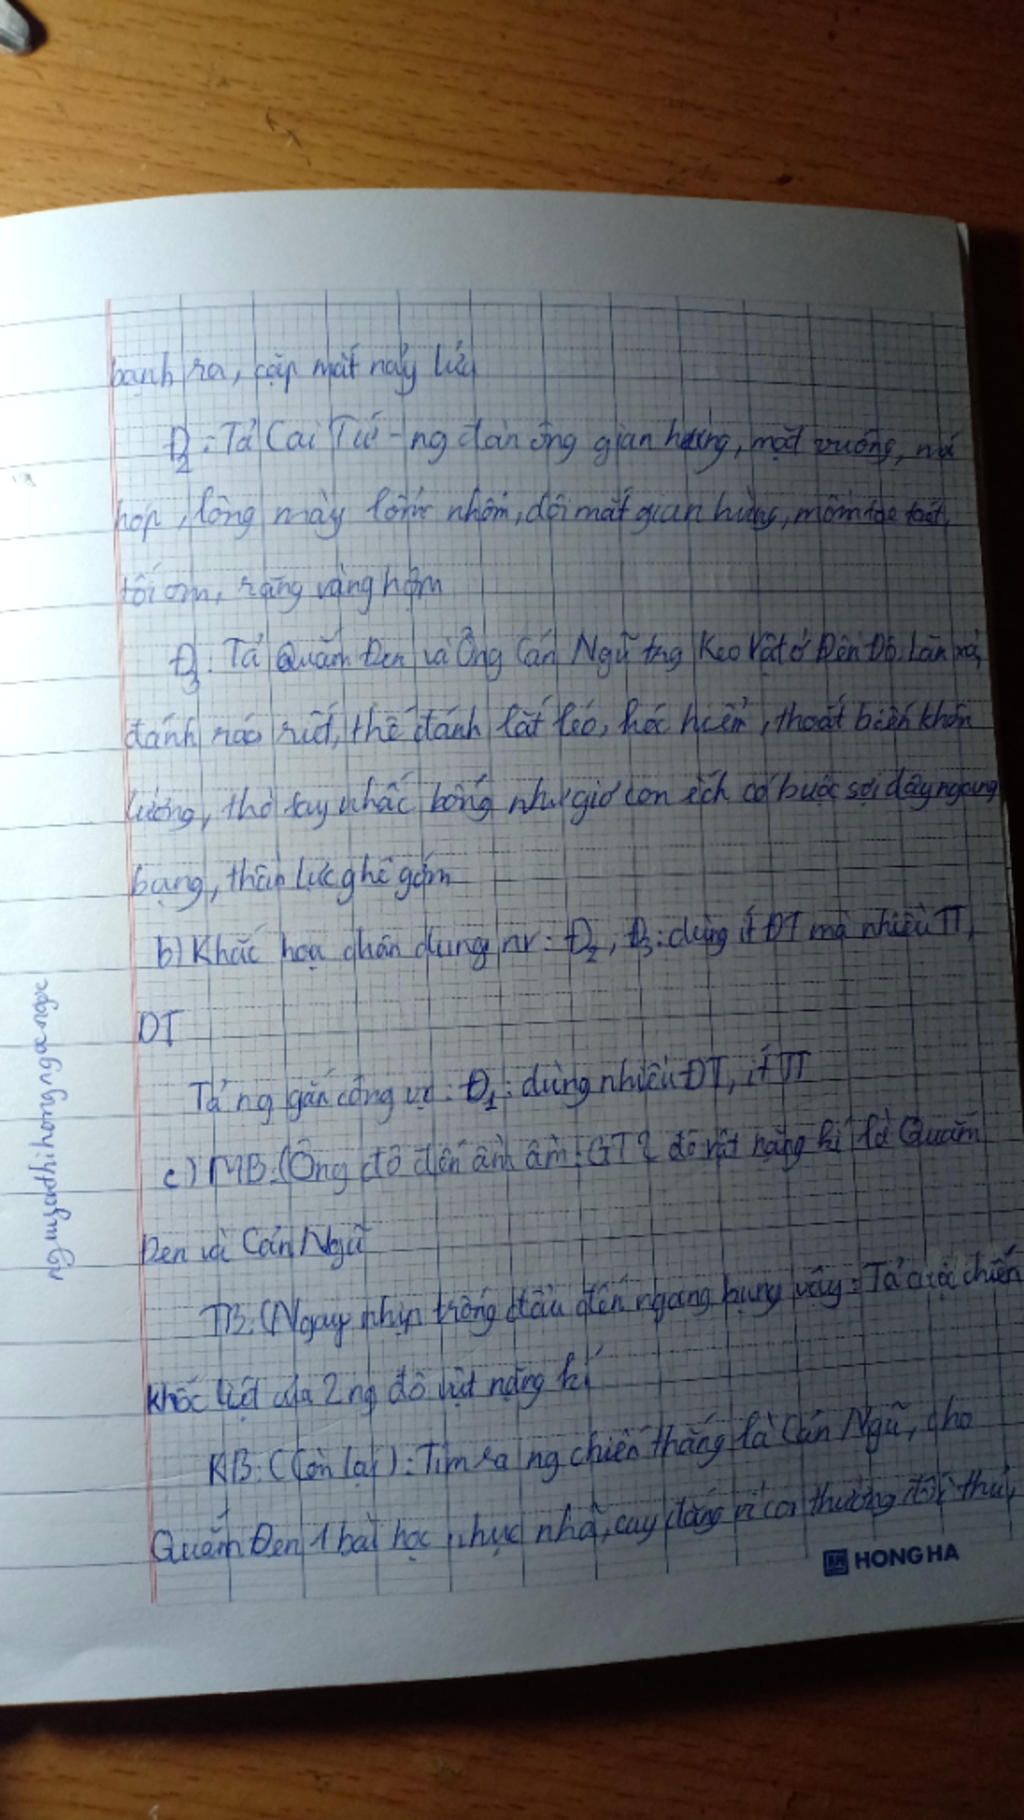 bạnh ra, cặp mắt nảy lửa
Đ2: Tả Cai Tứ - ng đàn ông gian hùng, mặt vuông, má
hóp, lông mày lổm nhổm, đôi mắt gian hùng, mồm toe toét
tối om, răng vàng hợm
Đ3: Tả Quắm Đen và Ông Cản Ngũ tng Keo vật ở Đền Đô. Lăn xả,
đánh ráo riết, thế đánh lắt léo, hóc hiểm, thoắt biến khôn
lường, thò tay nhấc bổng như giơ con ếch có buộc sợi dây ngang
bụng, thần lực ghê gớm
b) Khắc hoạ chân dung nv: Đ2, Đ3: dùng ít ĐT mà nhiều TT,
DT
Tả ng gắn công vc: Đ1: dùng nhiều ĐT, ít TT
c) MB: (Ông đô đến ầm ầm: GT 2 đô vật nặng kí là Quắm
Đen và Cản Ngũ
TB: (Ngay nhịp trống đầu đến ngang bụng vậy: Tả cuộc chiến
khốc liệt của 2 ng đô vật nặng kí
KB: (Còn lại): Tìm ra ng chiến thắng là Cản Ngũ, cho
Quắm Đen 1 bài học nhục nhã, cay đắng vì coi thường đối thủ,
HONG HA
nguyenthihongngangoc